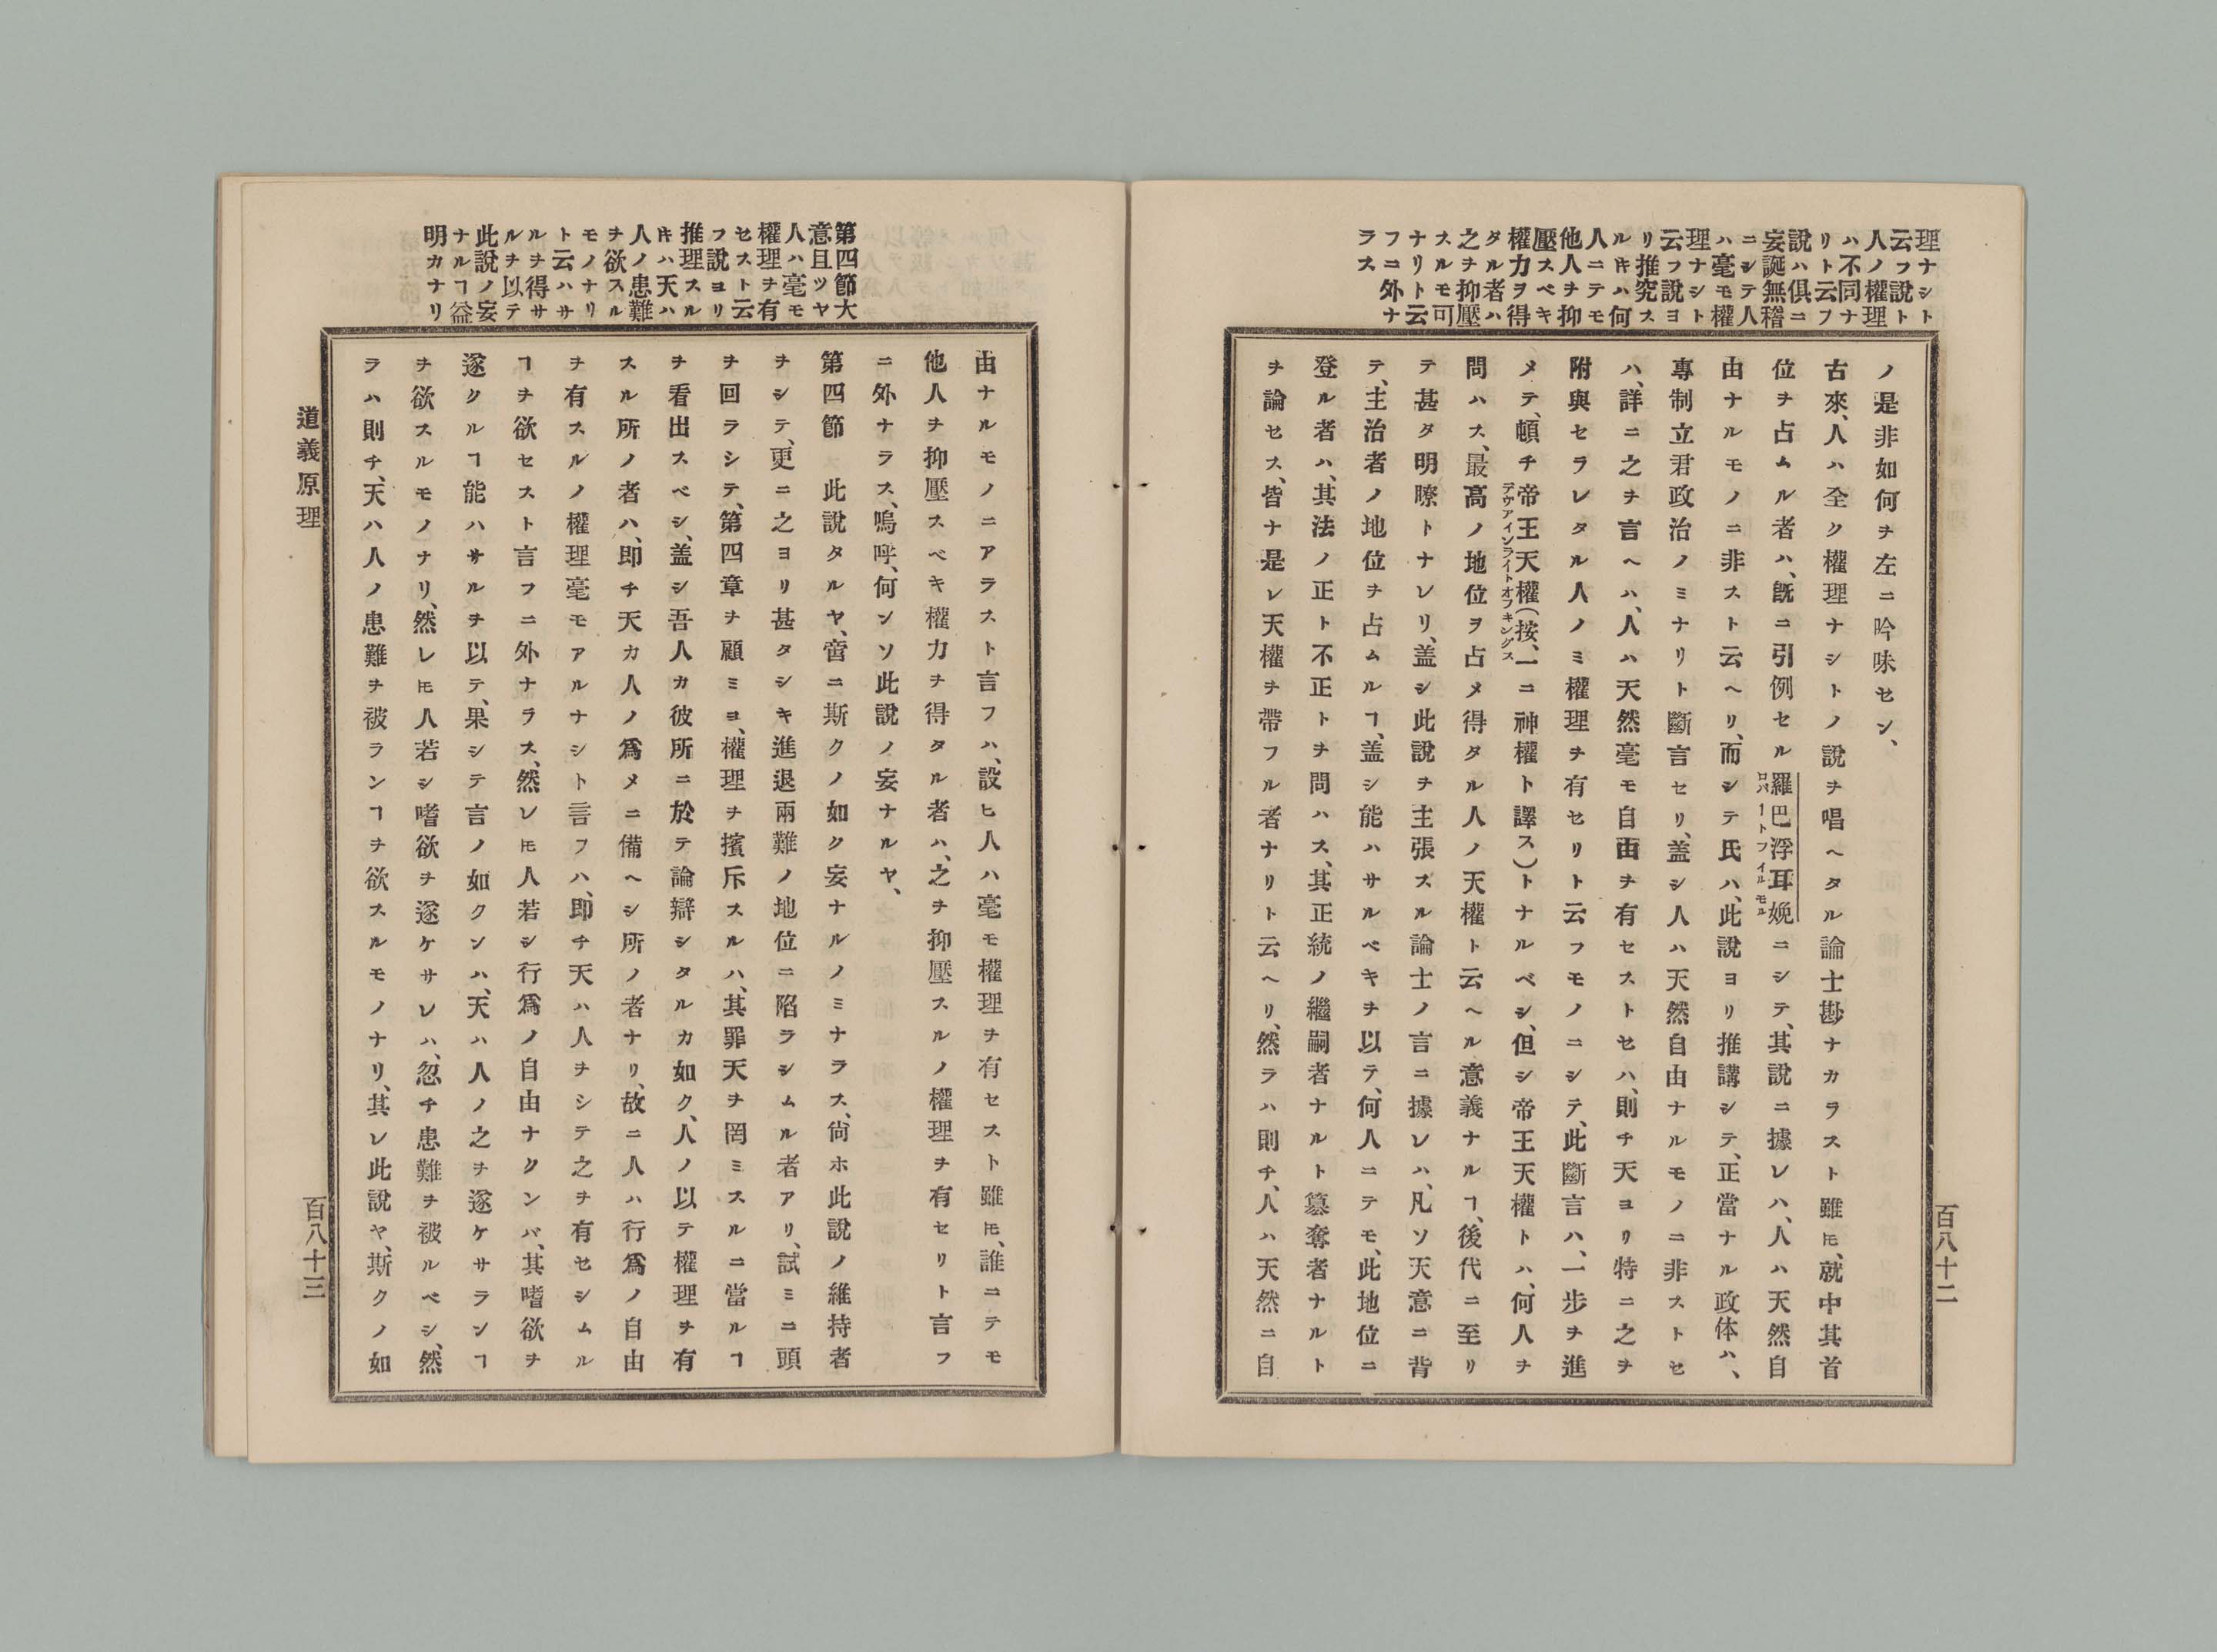 理ナシト
云フ說ト
人ノ權理
ハ不同ナ
リト云フ
說ハ俱ニ
妄誕無稽
ニシテ人
ハ毫モ權
理ナシト
云フ說ヨ
リ推究ス
ルキハ何
人ニテモ
他人ヲ抑
壓スベキ
權力ヲ得
タル者ハ
之ヲ抑壓
スルモ可
ナリト云
フニ外ナ
ラス
ノ是非如何ヲ左ニ吟味セン、
古來、人ハ全ク權理ナシトノ說ヲ唱ヘタル論士尠ナカラスト雖𪜈、就中其首
位ヲ占ムル者ハ、旣ニ引例セル羅巴浮耳娩ニシテ、其說ニ據レハ、人ハ天然自
ロバートフイルモル
由ナルモノニ非スト云ヘリ、而シテ氏ハ、此說ヨリ推講シテ、正當ナル政体ハ、
專制立君政治ノミナリト斷言セリ、盖シ人ハ天然自由ナルモノニ非ストセ
ハ、詳ニ之ヲ言ヘハ、人ハ天然毫モ自由ヲ有セストセハ、則チ天ヨリ特ニ之ヲ
附與セラレタル人ノミ權理ヲ有セリト云フモノニシテ、此斷言ハ、一步ヲ進
メテ、頓チ帝王天權(按、一ニ神權ト譯ス)トナルベシ、但シ帝王天權トハ、何人ヲ
デヴアインライトオフキングス
問ハス、最高ノ地位ヲ占メ得タル人ノ天權ト云ヘル意義ナルヿ、後代ニ至リ
テ甚タ明瞭トナレリ、盖シ此說ヲ主張スル論士ノ言ニ據レハ、凡ソ天意ニ背
テ、主治者ノ地位ヲ占ムルヿ、盖シ能ハサルベキヲ以テ、何人ニテモ、此地位ニ
登ル者ハ、其法ノ正ト不正トヲ問ハス、其正統ノ繼嗣者ナルト簒奪者ナルト
ヲ論セス、皆ナ是レ天權ヲ帶フル者ナリト云ヘリ、然ラハ則チ、人ハ天然ニ自
百八十二
第四節大
意且ツヤ
人ハ毫モ
權理ヲ有
セスト云
フ說ヨリ
推理スル
キハ天ハ
人ノ患難
ヲ欲スル
モノナリ
ト云ハサ
ルヲ得サ
ルヲ以テ
此說ノ妄
ナルヿ益
明カナリ
由ナルモノニアラスト言フハ、設ヒ人ハ毫モ權理ヲ有セスト雖𪜈、誰ニテモ
他人ヲ抑壓スベキ權力ヲ得タル者ハ、之ヲ抑壓スルノ權理ヲ有セリト言フ
ニ外ナラス、嗚呼、何ンソ此說ノ妄ナルヤ、
第四節　此說タルヤ、啻ニ斯クノ如ク妄ナルノミナラス、尙ホ此說ノ維持者
ヲシテ、更ニ之ヨリ甚タシキ進退兩難ノ地位ニ陷ラシムル者アリ、試ミニ頭
ヲ回ラシテ、第四章ヲ顧ミヨ、權理ヲ擯斥スルハ、其罪天ヲ罔ミスルニ當ルヿ
ヲ看出スベシ、盖シ吾人カ彼所ニ於テ論辯シタルカ如ク、人ノ以テ權理ヲ有
スル所ノ者ハ、卽チ天カ人ノ爲メニ備ヘシ所ノ者ナリ、故ニ人ハ行爲ノ自由
ヲ有スルノ權理毫モアルナシト言フハ、卽チ天ハ人ヲシテ之ヲ有セシムル
ヿヲ欲セスト言フニ外ナラス、然レ𪜈人若シ行爲ノ自由ナクンバ、其嗜欲ヲ
遂クルヿ能ハサルヲ以テ、果シテ言ノ如クンハ、天ハ人ノ之ヲ遂ケサランヿ
ヲ欲スルモノナリ、然レ𪜈人若シ嗜欲ヲ遂ケサレハ、忽チ患難ヲ被ルベシ、然
ラハ則チ、天ハ人ノ患難ヲ被ランヿヲ欲スルモノナリ、其レ此說ヤ、斯クノ如
道義原理
百八十三